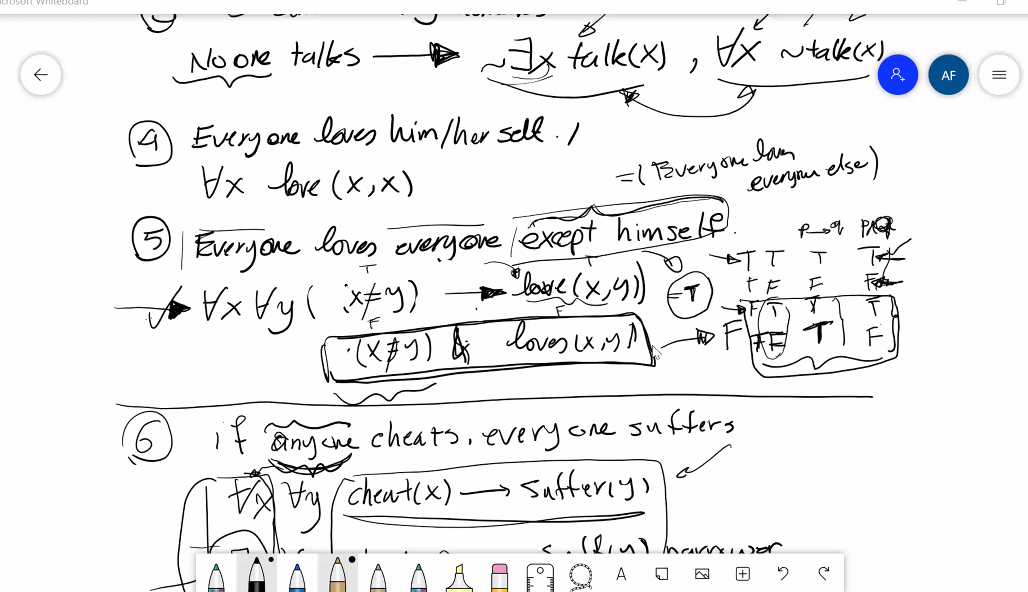 crosoft Whiteboard
No one talks → ~∃x talk(x) , ∀x ~talk(x)
AF
④ Everyone loves him/her self.
∀x love (x,x)
= ( Everyone loves everyone else)
⑤ Everyone loves everyone except himself.
p→q
T T T T
F F F
∀x ∀y ( x≠y) → love(x,y)) = T
T T
F F
F T T T
(x≠y) & loves(x,y) → F
F F T F
⑥ if anyone cheats, everyone suffers
∀x ∀y cheat(x) → suffer(y)
narrower
A